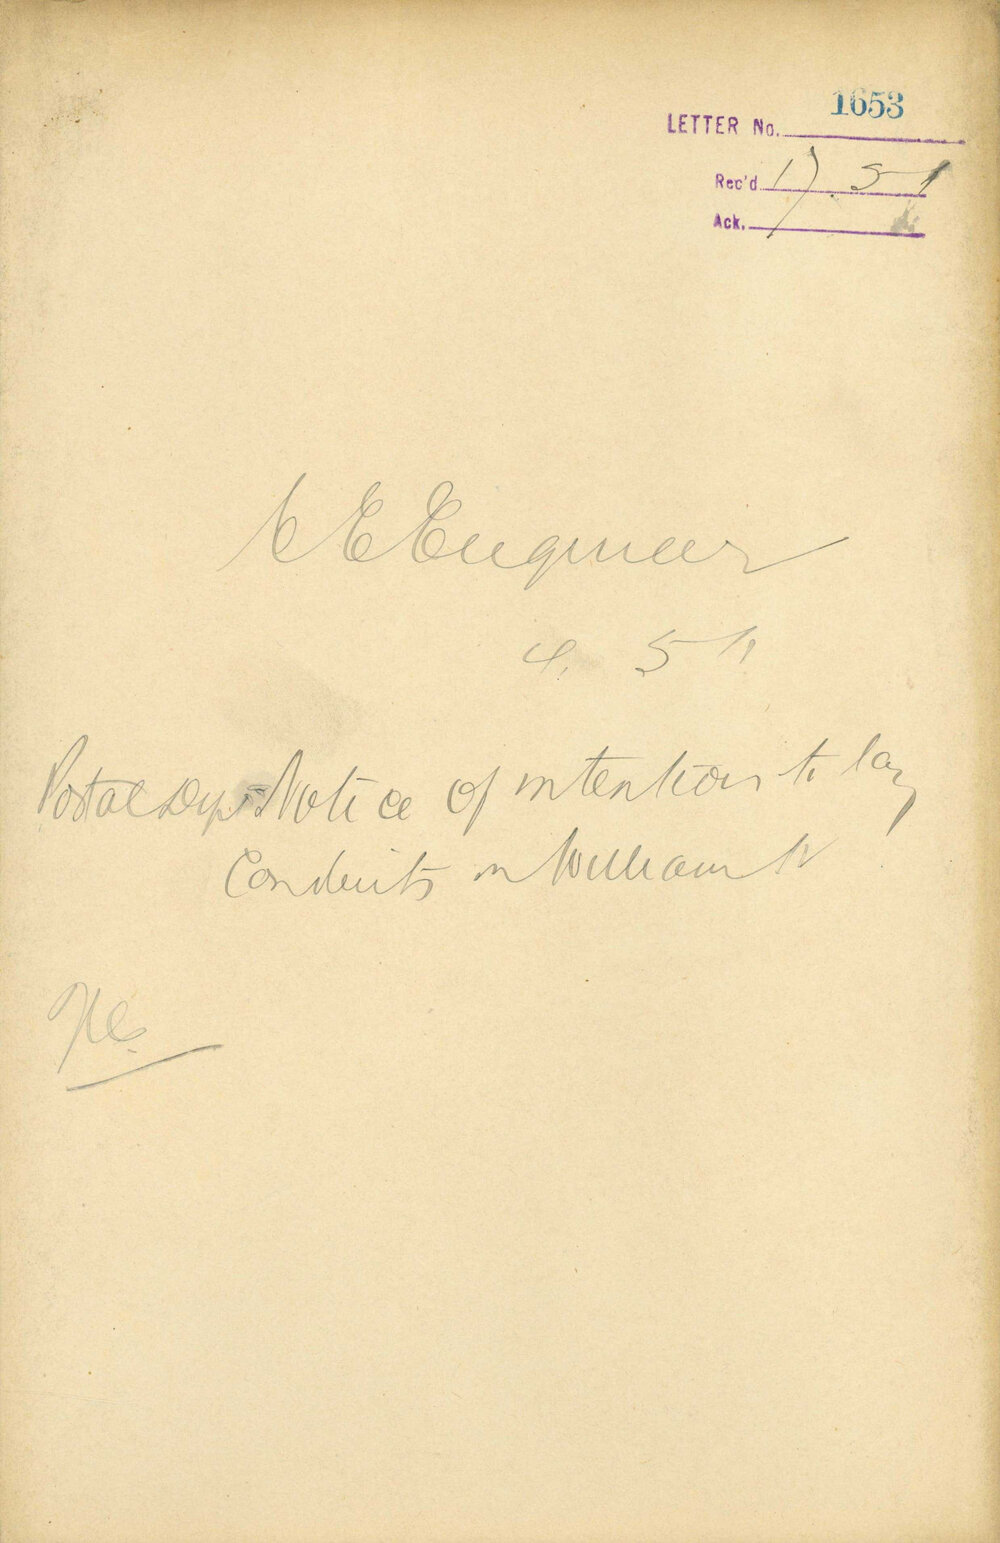 1653
LETTER No.
Rec'd 17.5.1
Ack.
C E Engineer
4. 5 11
Postal Dept Notice of intention to lay
Conduits in William St